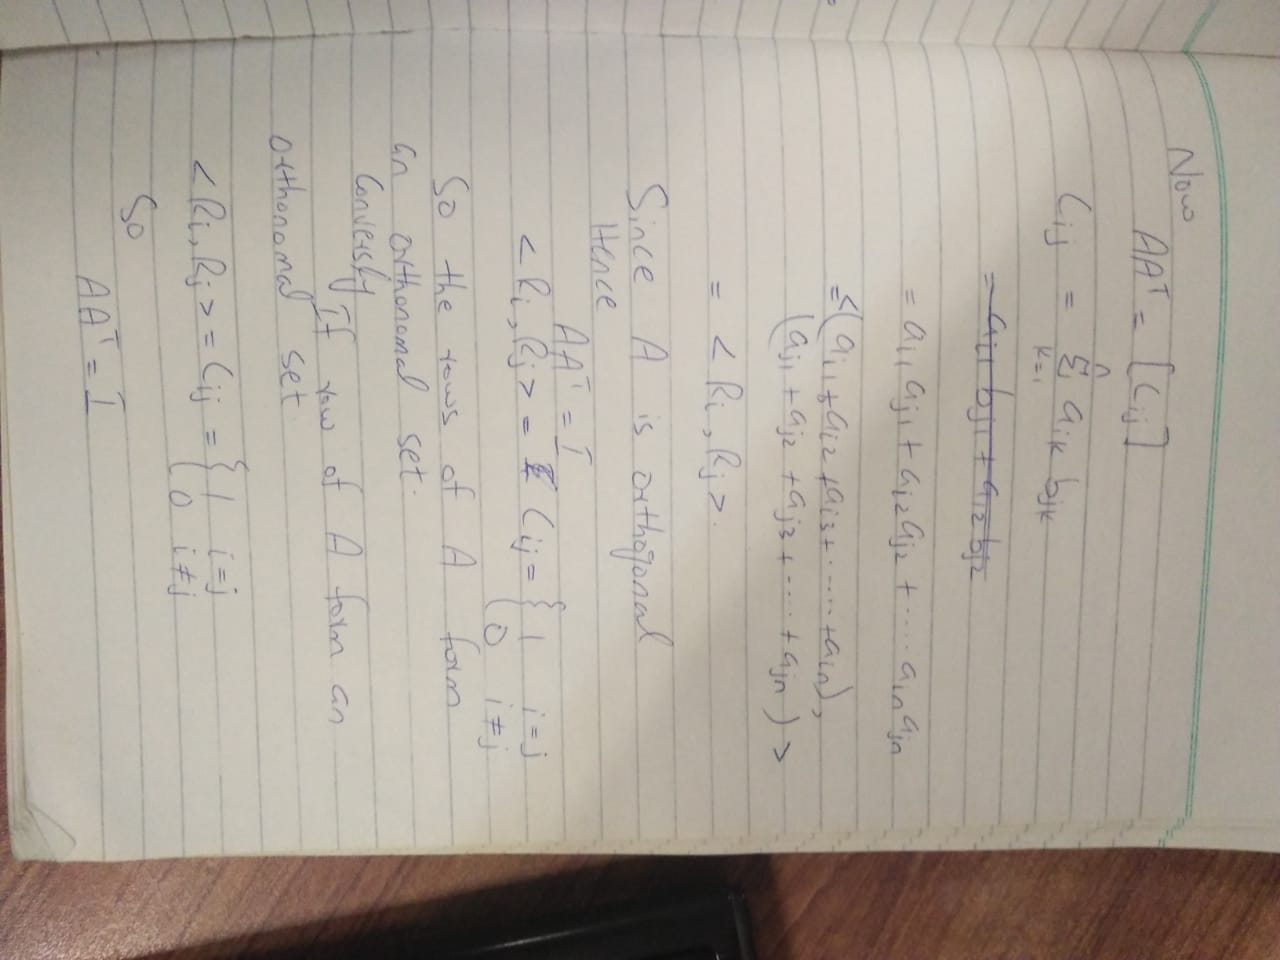 Now
AAᵀ = [Cij]
Cij = n Σ k=1 aik bjk
= ai1 bj1 + ai2 bj2
= ai1 aj1 + ai2 aj2 + .... ain ajn
= <(ai1 + ai2 + ai3 + ...... + ain),
(aj1 + aj2 + aj3 + .... + ajn) >
= < Ri, Rj >.
Since A is orthogonal
Hence
AAᵀ = I
< Ri, Rj > = Cij = { 1 i = j
0 i ≠ j
So the rows of A form
an orthonomal set.
Conversly
If row of A form an
orthonomal set
< Ri, Rj > = Cij = { 1 i = j
0 i ≠ j
So
AAᵀ = I